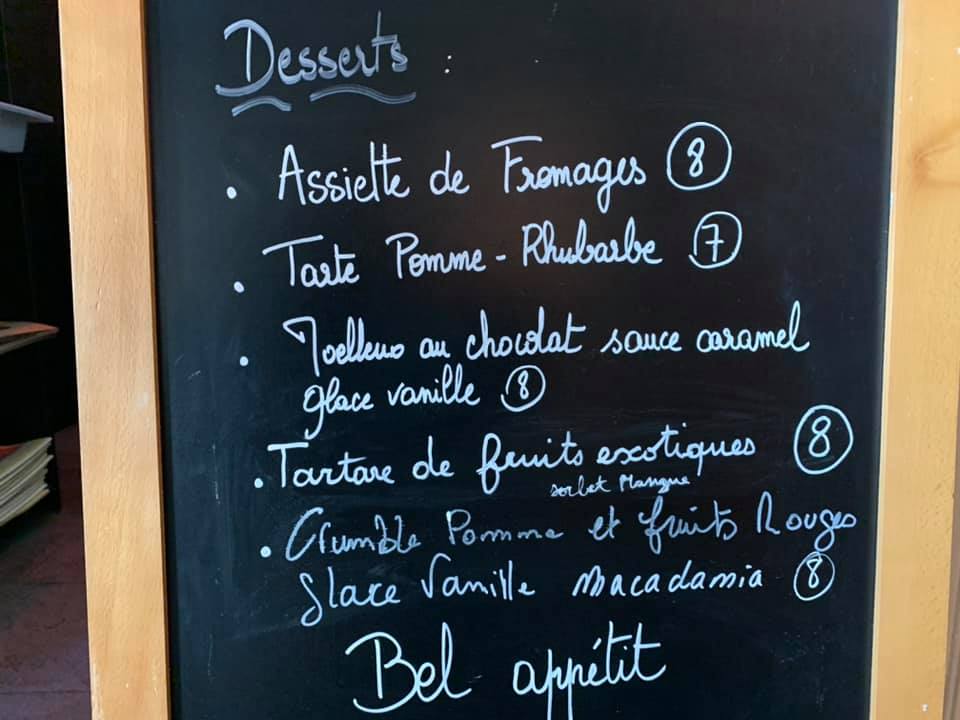 Desserts :
• Assiette de Fromages 8
• Tarte Pomme - Rhubarbe 7
• Moelleux au chocolat sauce caramel
glace vanille 8
• Tartare de fruits exotiques 8
sorbet Mangue
• Crumble Pomme et fruits Rouges
glace Vanille Macadamia 8
Bel appétit